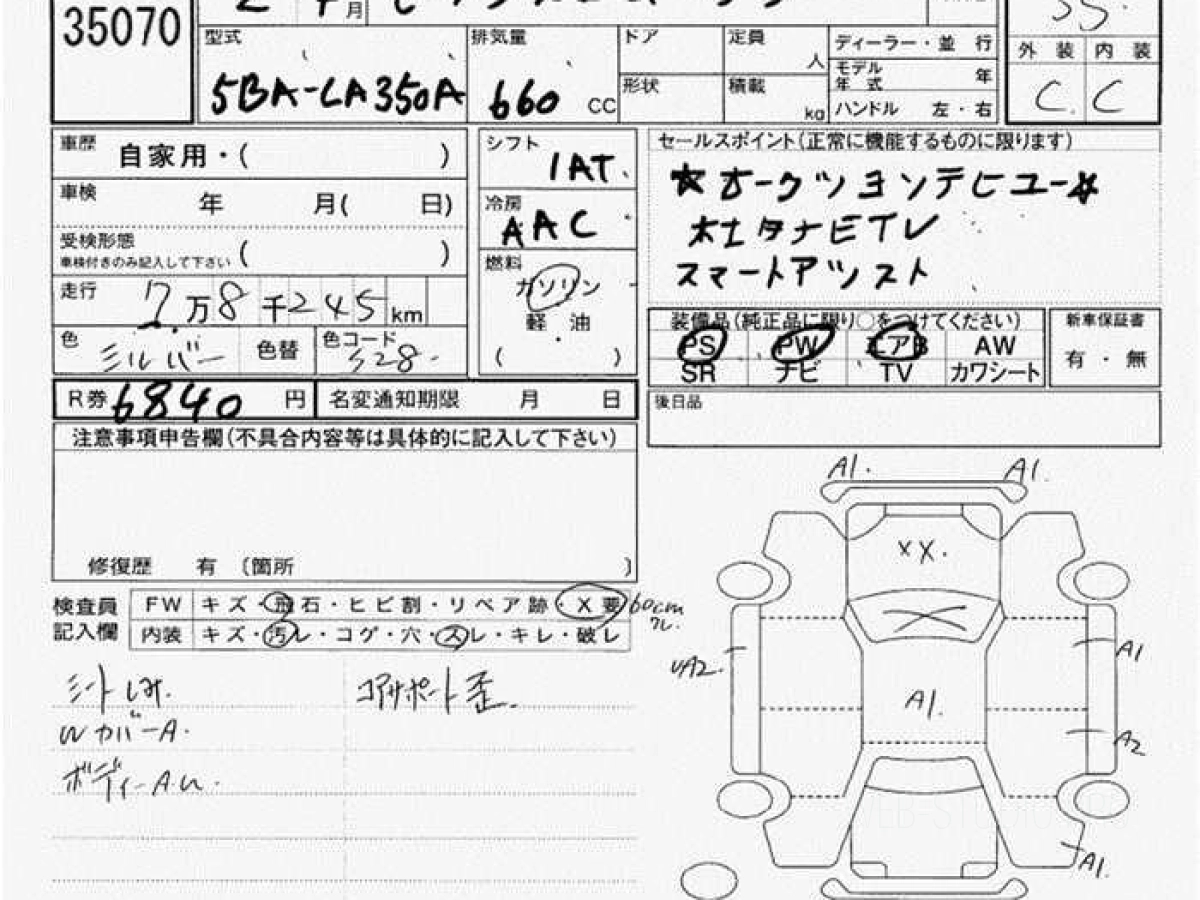 35070
月
型式 排気量 ドア 定員 人 ディーラー・並 行
5BA-LA350A 660 CC 形状 積載 kg モデル年 式 年
ハンドル 左・右
外 装 内 装
C. C
車歴 自家用・( )
車検 年 月( 日)
受検形態 ( )
車検付きのみ記入して下さい
走行 7万8千245km
色 シルバー 色替 色コード S28.
シフト IAT.
冷房 AAC
燃料 ガソリン
軽 油
( )
セールスポイント(正常に機能するものに限ります)
★オークションデビュー★
本土タナ ETV
スマートアシスト
装備品(純正品に限り○をつけてください)
PS PW エアB AW
SR ナビ TV カワシート
新車保証書
有・無
R券 6840 円 名変通知期限 月 日
後日品
注意事項申告欄(不具合内容等は具体的に記入して下さい)
修復歴 有 〔箇所 〕
検査員記入欄
FW キズ・飛石・ヒビ割・リペア跡・X要 60cm
内装 キズ・汚レ・コゲ・穴・スレ・キレ・破レ
シートしみ. コアサポート歪.
WカバーA.
ボディーA.U.
A1. A1.
XX.
X
UA2. A1
A1. A2
A1.